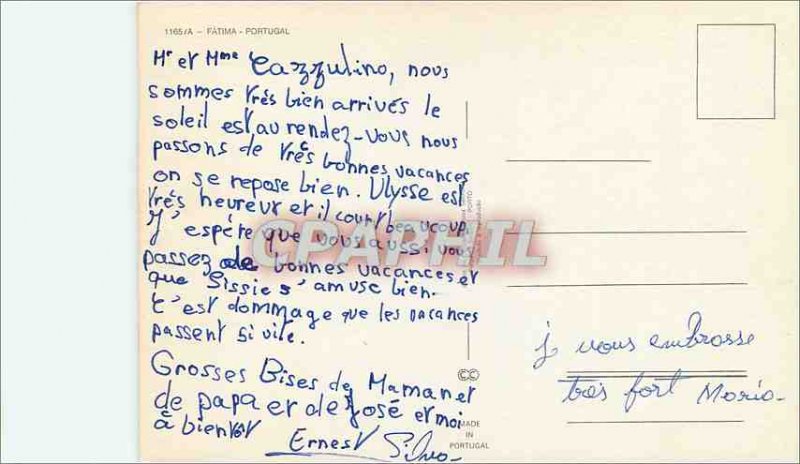 1165/A - FÁTIMA - PORTUGAL
Mr et Mme Cazzulino, nous
sommes très bien arrivés le
soleil est au rendez-vous nous
passons de très bonnes vacances
on se repose bien. Ulysse est
très heureux et il court beaucoup.
J'espère que vous aussi vous
passez de bonnes vacances et
que Sissie s'amuse bien.
C'est dommage que les vacances
passent si vite.
Grosses Bises de Maman et
de papa et de José et moi
à bientôt
Ernest Silva
CPAPHIL
PORTO
MADE
IN
PORTUGAL
je vous embrasse
très fort Maria